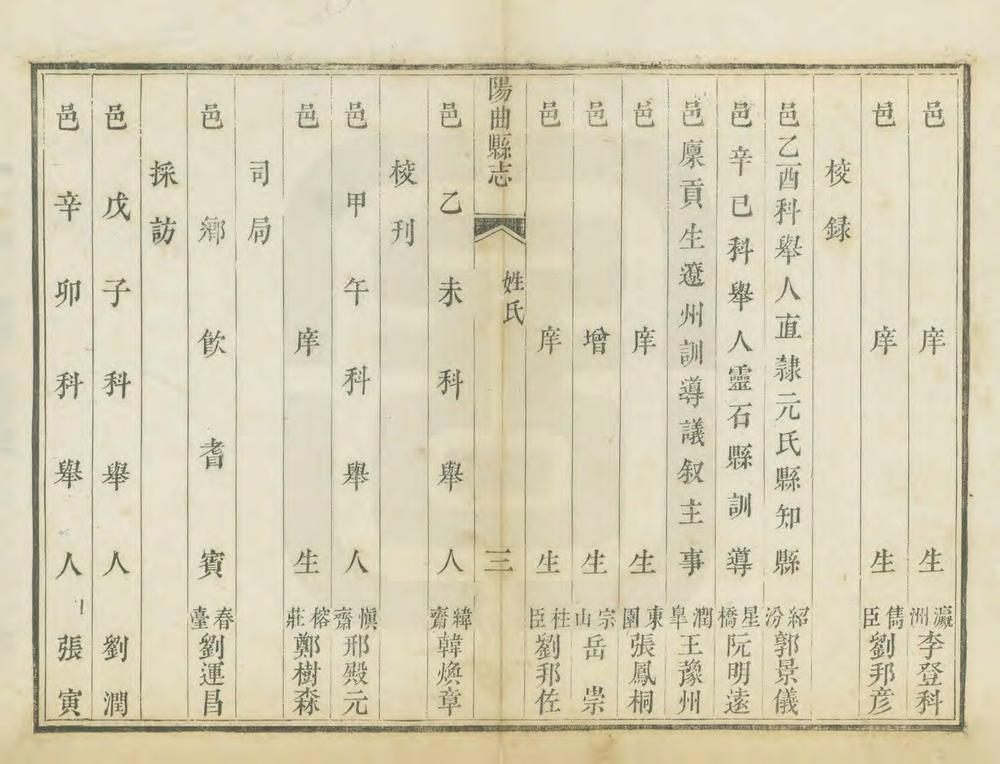 邑庠生瀛洲李登科
邑庠生儁臣劉邦彦
校録
邑乙酉科舉人直隸元氏縣知縣紹汾郭景儀
邑辛巳科舉人靈石縣訓導星橋阮明遠
邑廩貢生遼州訓導議叙主事潤臯王豫州
邑庠生東園張鳳桐
邑增生宗山岳崇
邑庠生柱臣劉邦佐
陽曲縣志
姓氏
三
邑乙未科舉人緯齋韓煥章
校刊
邑甲午科舉人慎齋邢殿元
邑庠生榕莊鄭樹森
司局
邑鄉飲耆賓春臺劉運昌
採訪
邑戊子科舉人劉潤
邑辛卯科舉人張寅